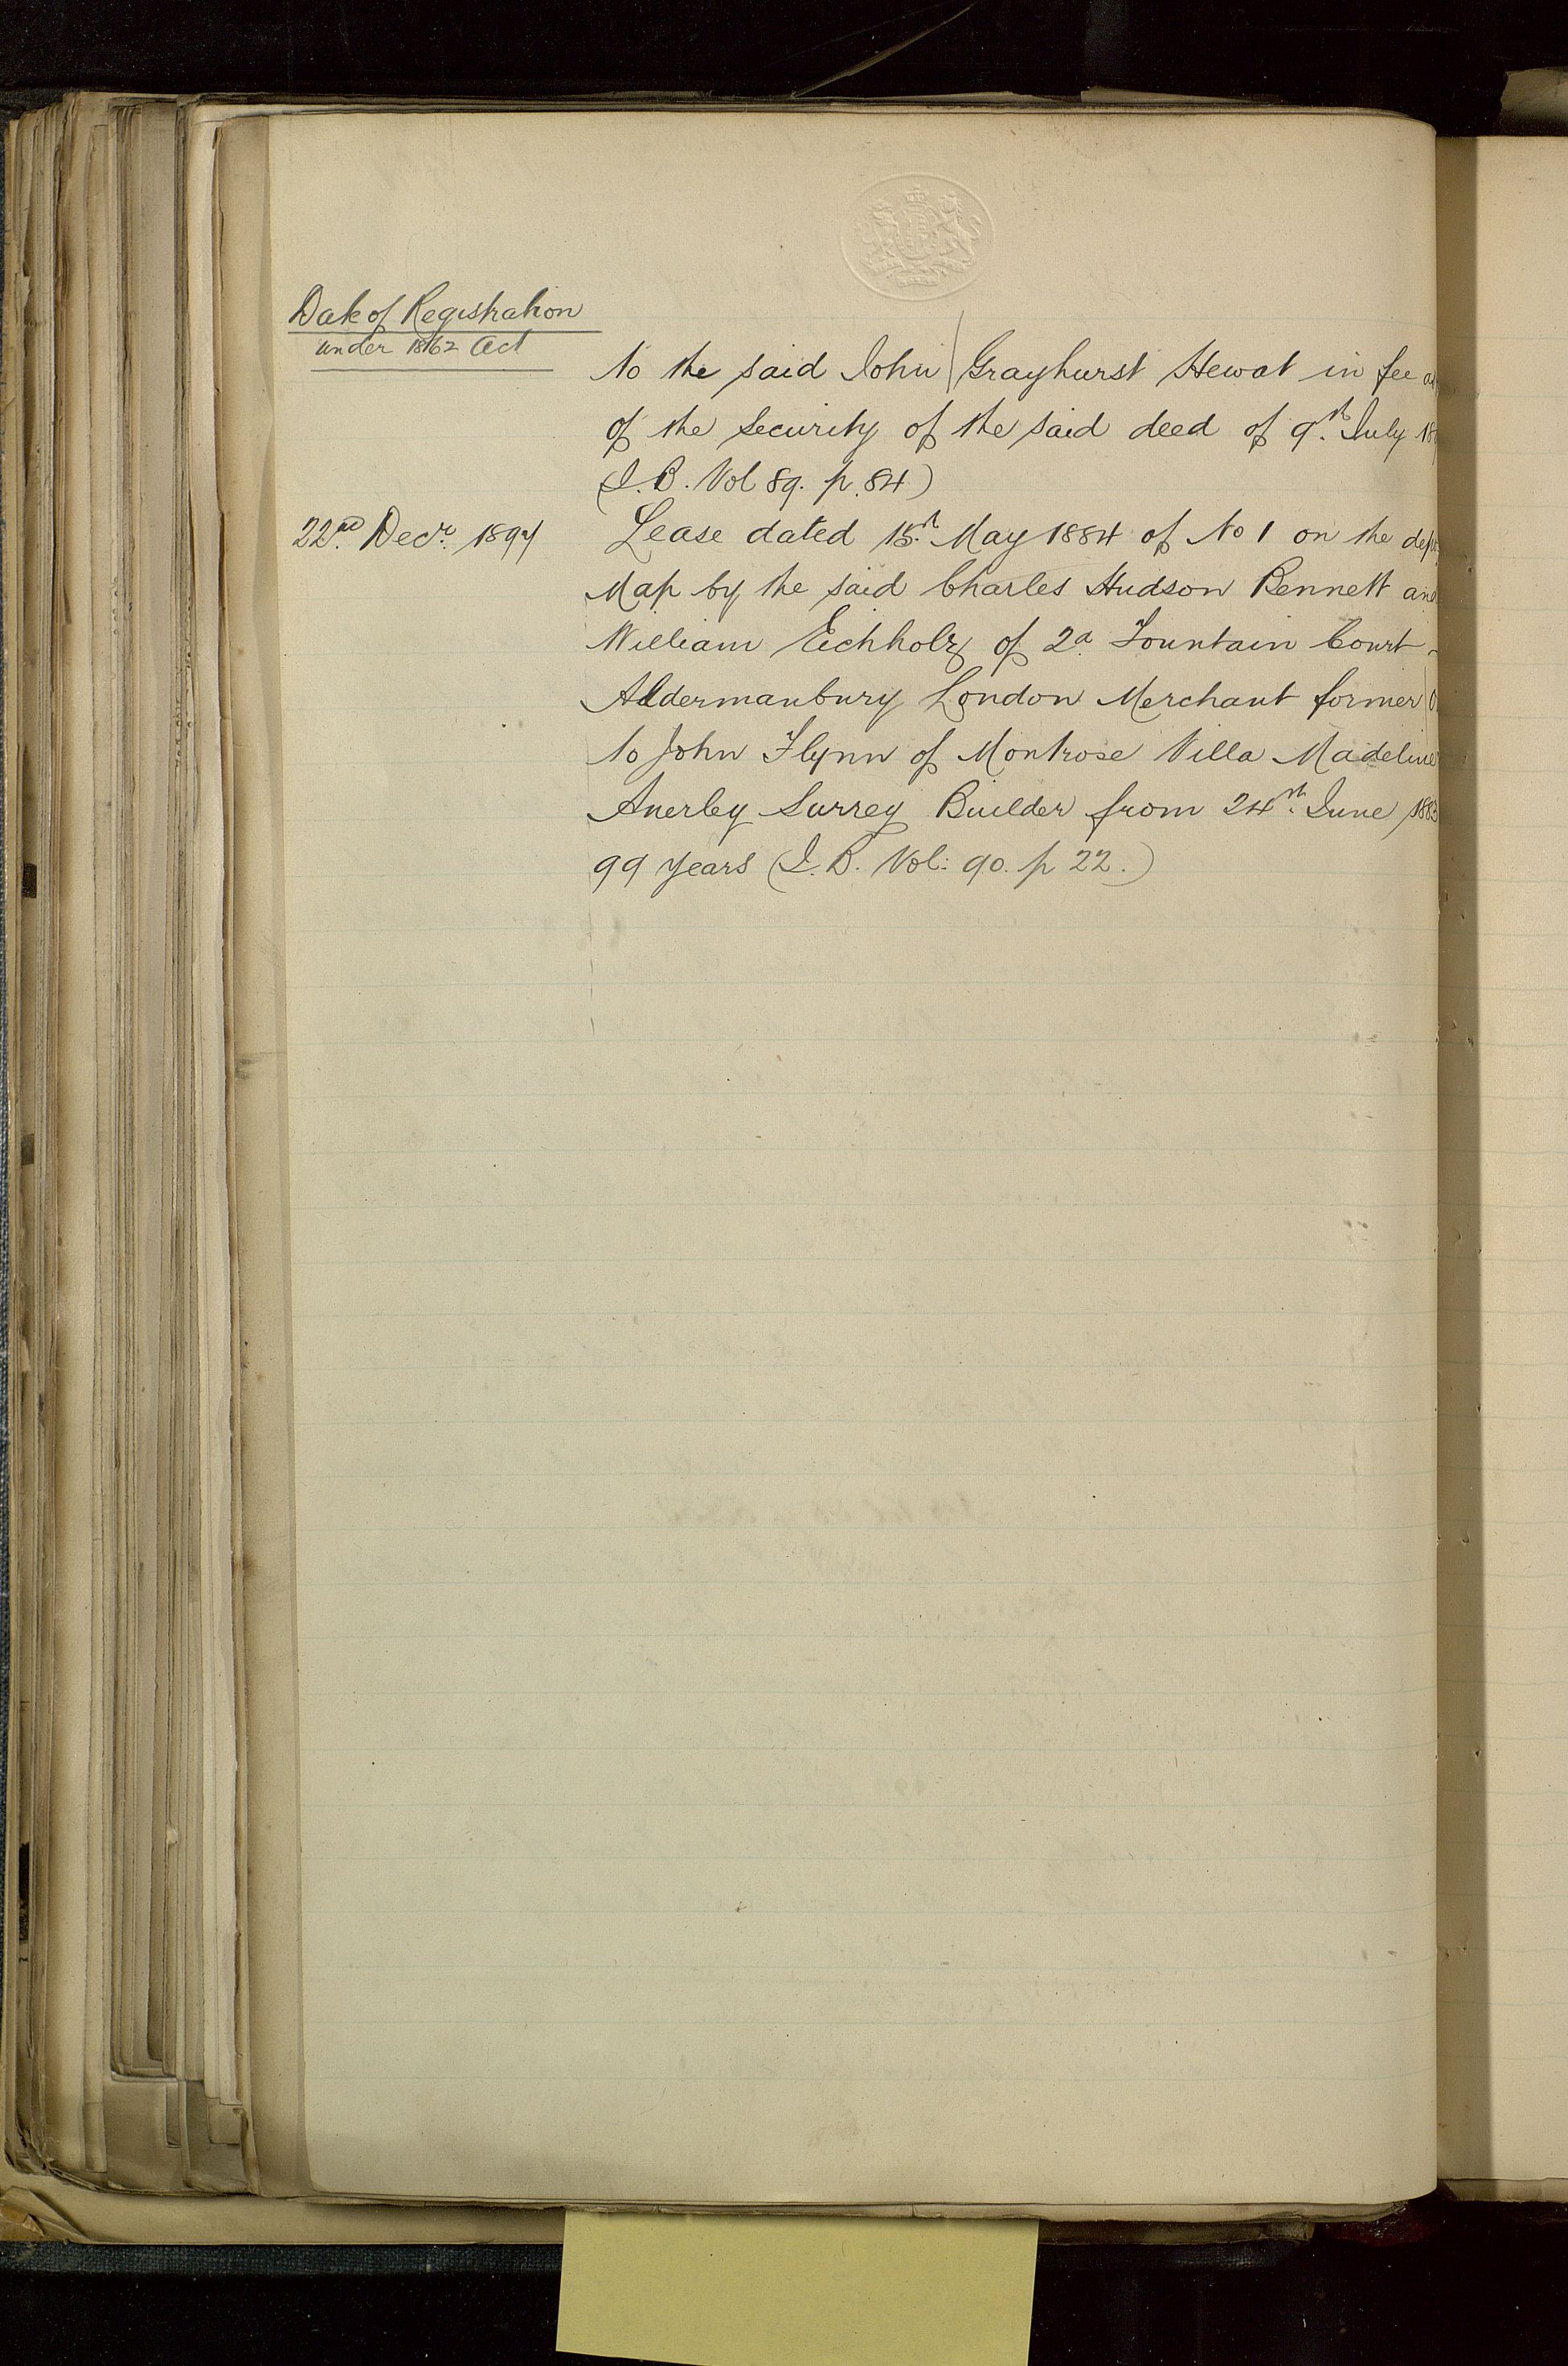 Date of Registration
under 1862 Act
to the said John Grayhurst Hewat in fee
of the security of the said deed of 9th July 18
(I.B. Vol 89. p. 84)
22nd Decr. 1894
Lease dated 15th May 1884 of No 1 on the
Map by the said Charles Hudson Bennett and
William Eichholz of 2a Fountain Court
Aldermanbury London Merchant former
to John Flynn of Montrose Villa Madeline
Anerley Surrey Builder from 24th June 1883
99 years (I.B. Vol: 90. p 22.)